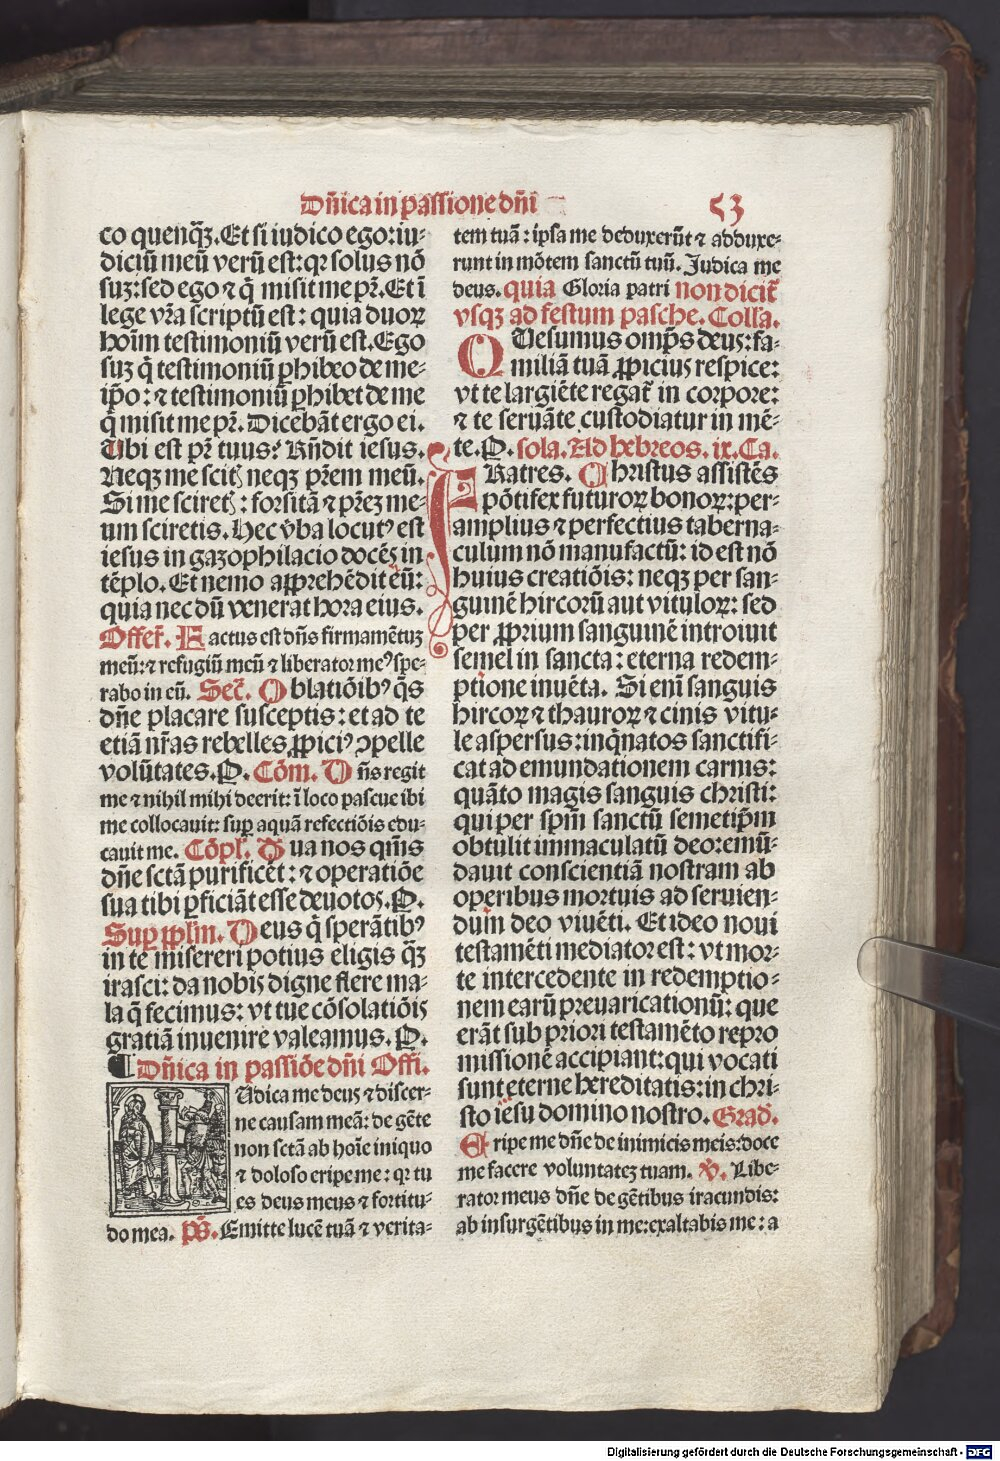 Dñica in passione dñi
53
co quenq̃ꝫ. Et si iudico ego: iu-
diciũ meũ verũ est: qꝛ solus nõ
suꝫ: sed ego ⁊ q̃ misit me pr̃. Et ĩ
lege vr̃a scriptũ est: quia duoꝝ
hoĩm testimoniũ verũ est. Ego
suꝫ q̃ testimoniũ ꝑhibeo de me-
ip̃o: ⁊ testimoniũ ꝑhibet de me
q̃ misit me pr̃. Dicebãt ergo ei.
Ubi est pr̃ tuus? Rñdit iesus.
Neqꝫ me scitꝭ neqꝫ pr̃em meũ.
Si me sciretꝭ: forsitã ⁊ pr̃eꝫ me-
um sciretis. Hec ṽba locutꝰ est
iesus in gazophilacio docẽs in
tẽplo. Et nemo apꝓrehẽdit eũ:
quia nec dũ venerat hora eius.
Offer̃. Factus est dñs firmamẽtuꝫ
meũ: ⁊ refugiũ meũ ⁊ liberator meꝰ spe-
rabo in eũ. Secr̃. Oblatiõibꝰ q̃s
dñe placare susceptis: et ad te
etiã nr̃as rebelles ꝓpiciꝰ ꝯpelle
volũtates. P. Cõm. Dñs regit
me ⁊ nihil mihi deerit: ĩ loco pascue ibi
me collocauit: suꝑ aquã refectiõis edu-
cauit me. Cõpl. Tua nos qm̃s
dñe sctã purificẽt: ⁊ operatiõe
sua tibi ꝑficiãt esse deuotos. P.
Suꝑ pplm̃. Deus q̃ sperãtibꝰ
in te misereri potius eligis q̃ꝫ
irasci: da nobis digne flere ma-
la q̃ fecimus: vt tue cõsolatiõis
gratiã inuenire valeamus. P.
¶ Dñica in passiõe dñi Offi.
Iudica me deus ⁊ discer-
ne causam meã: de gẽte
non sctã ab hoĩe iniquo
⁊ doloso eripe me: qꝛ tu
es deus meus ⁊ fortitu-
do mea. ps̃. Emitte lucẽ tuã ⁊ verita-
tem tuã: ipsa me deduxerũt ⁊ adduxe-
runt in mõtem sanctũ tuũ. Judica me
deus. quia Gloria patri non dicit̃
vsqꝫ ad festum pasche. Coll̃a.
Quesumus omp̃s deus: fa-
miliã tuã ꝓpicius respice:
vt te largiẽte regat̃ in corpore:
⁊ te seruãte custodiatur in mẽ-
te. P. sola. Ad hebreos. ix. Ca.
Fratres. Christus assistẽs
põtifex futuroꝝ bonoꝝ: per-
amplius ⁊ perfectius taberna-
culum nõ manufactũ: id est nõ
huius creatiõis: neqꝫ per san-
guinẽ hircorũ aut vituloꝝ: sed
per ꝓprium sanguinẽ introiuit
semel in sancta: eterna redem-
ptione inuẽta. Si eni sanguis
hircoꝝ ⁊ thauroꝝ ⁊ cinis vitu-
le aspersus: inq̃natos sanctifi-
cat ad emundationem carnis:
quãto magis sanguis christi:
qui per spm̃ sanctũ semetip̃m
obtulit immaculatũ deo: emũ-
dauit conscientiã nostram ab
operibus mortuis ad seruien-
dum deo viuẽti. Et ideo noui
testamẽti mediator est: vt mor-
te intercedente in redemptio-
nem earũ preuaricationũ: que
erãt sub priori testamẽto repro
missionẽ accipiant: qui vocati
sunt eterne hereditatis: in chri-
sto iesu domino nostro. Grad̃.
Eripe me dñe de inimicis meis: doce
me facere voluntateꝫ tuam. ℣. Libe-
rator meus dñe de gẽtibus iracundis:
ab insurgẽtibus in me: exaltabis me: a
Digitalisierung gefördert durch die Deutsche Forschungsgemeinschaft - DFG